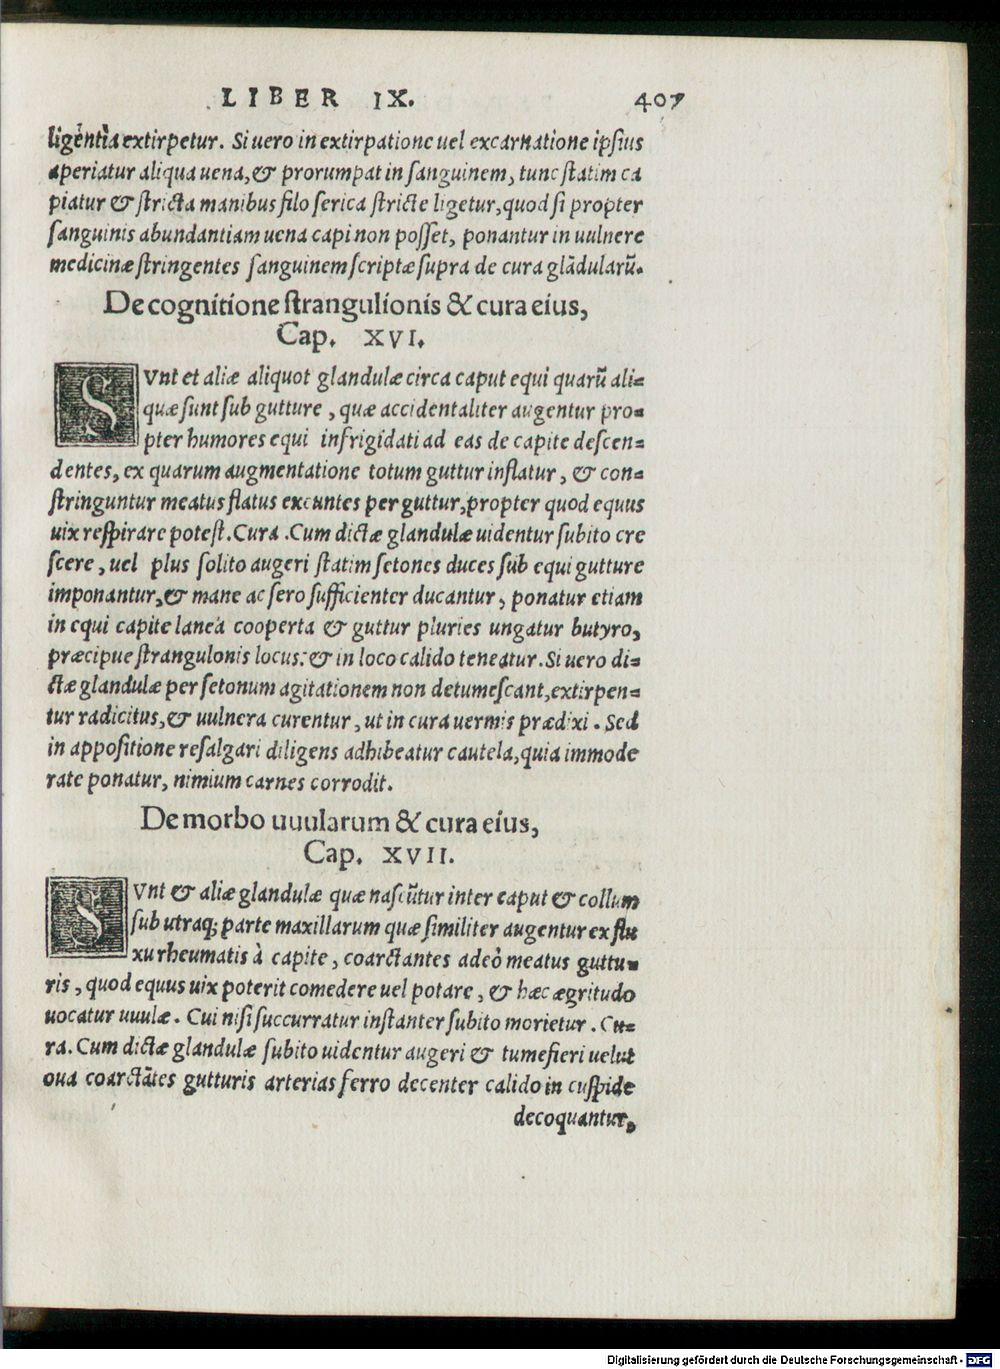 LIBER IX. 407
ligentia extirpetur. Si uero in extirpatione uel excarnatione ipsius
aperiatur aliqua uena, & prorumpat in sanguinem, tunc statim ca
piatur & stricta manibus filo serica stricte ligetur, quod si propter
sanguinis abundantiam uena capi non posset, ponantur in uulnere
medicinæ stringentes sanguinem scriptæ supra de cura glādularū.
De cognitione strangulionis & cura eius,
Cap. XVI.
SVnt et aliæ aliquot glandulæ circa caput equi quarū ali=
quæ sunt sub gutture, quæ accidentaliter augentur pro=
pter humores equi infrigidati ad eas de capite descen=
dentes, ex quarum augmentatione totum guttur inflatur, & con=
stringuntur meatus flatus exeuntes per guttur, propter quod equus
uix respirare potest. Cura. Cum dictæ glandulæ uidentur subito cre
scere, uel plus solito augeri statim setones duces sub equi gutture
imponantur, & mane ac sero sufficienter ducantur, ponatur etiam
in equi capite lanea cooperta & guttur pluries ungatur butyro,
præcipue strangulonis locus: & in loco calido teneatur. Si uero di=
ctæ glandulæ per setonum agitationem non detumescant, extirpen=
tur radicitus, & uulnera curentur, ut in cura uermis prædixi. Sed
in appositione resalgari diligens adhibeatur cautela, quia immode
rate ponatur, nimium carnes corrodit.
De morbo uuularum & cura eius,
Cap. XVII.
SVnt & aliæ glandulæ quæ nascūtur inter caput & collum
sub utraq; parte maxillarum quæ similiter augentur ex flu
xu rheumatis à capite, coarctantes adeò meatus guttu=
ris, quod equus uix poterit comedere uel potare, & hæc ægritudo
uocatur uuulæ. Cui nisi succurratur instanter subito morietur. Cu=
ra. Cum dictæ glandulæ subito uidentur augeri & tumefieri uelut
oua coarctātes gutturis arterias ferro decenter calido in cuspide
decoquantur,
Digitalisierung gefördert durch die Deutsche Forschungsgemeinschaft - DFG